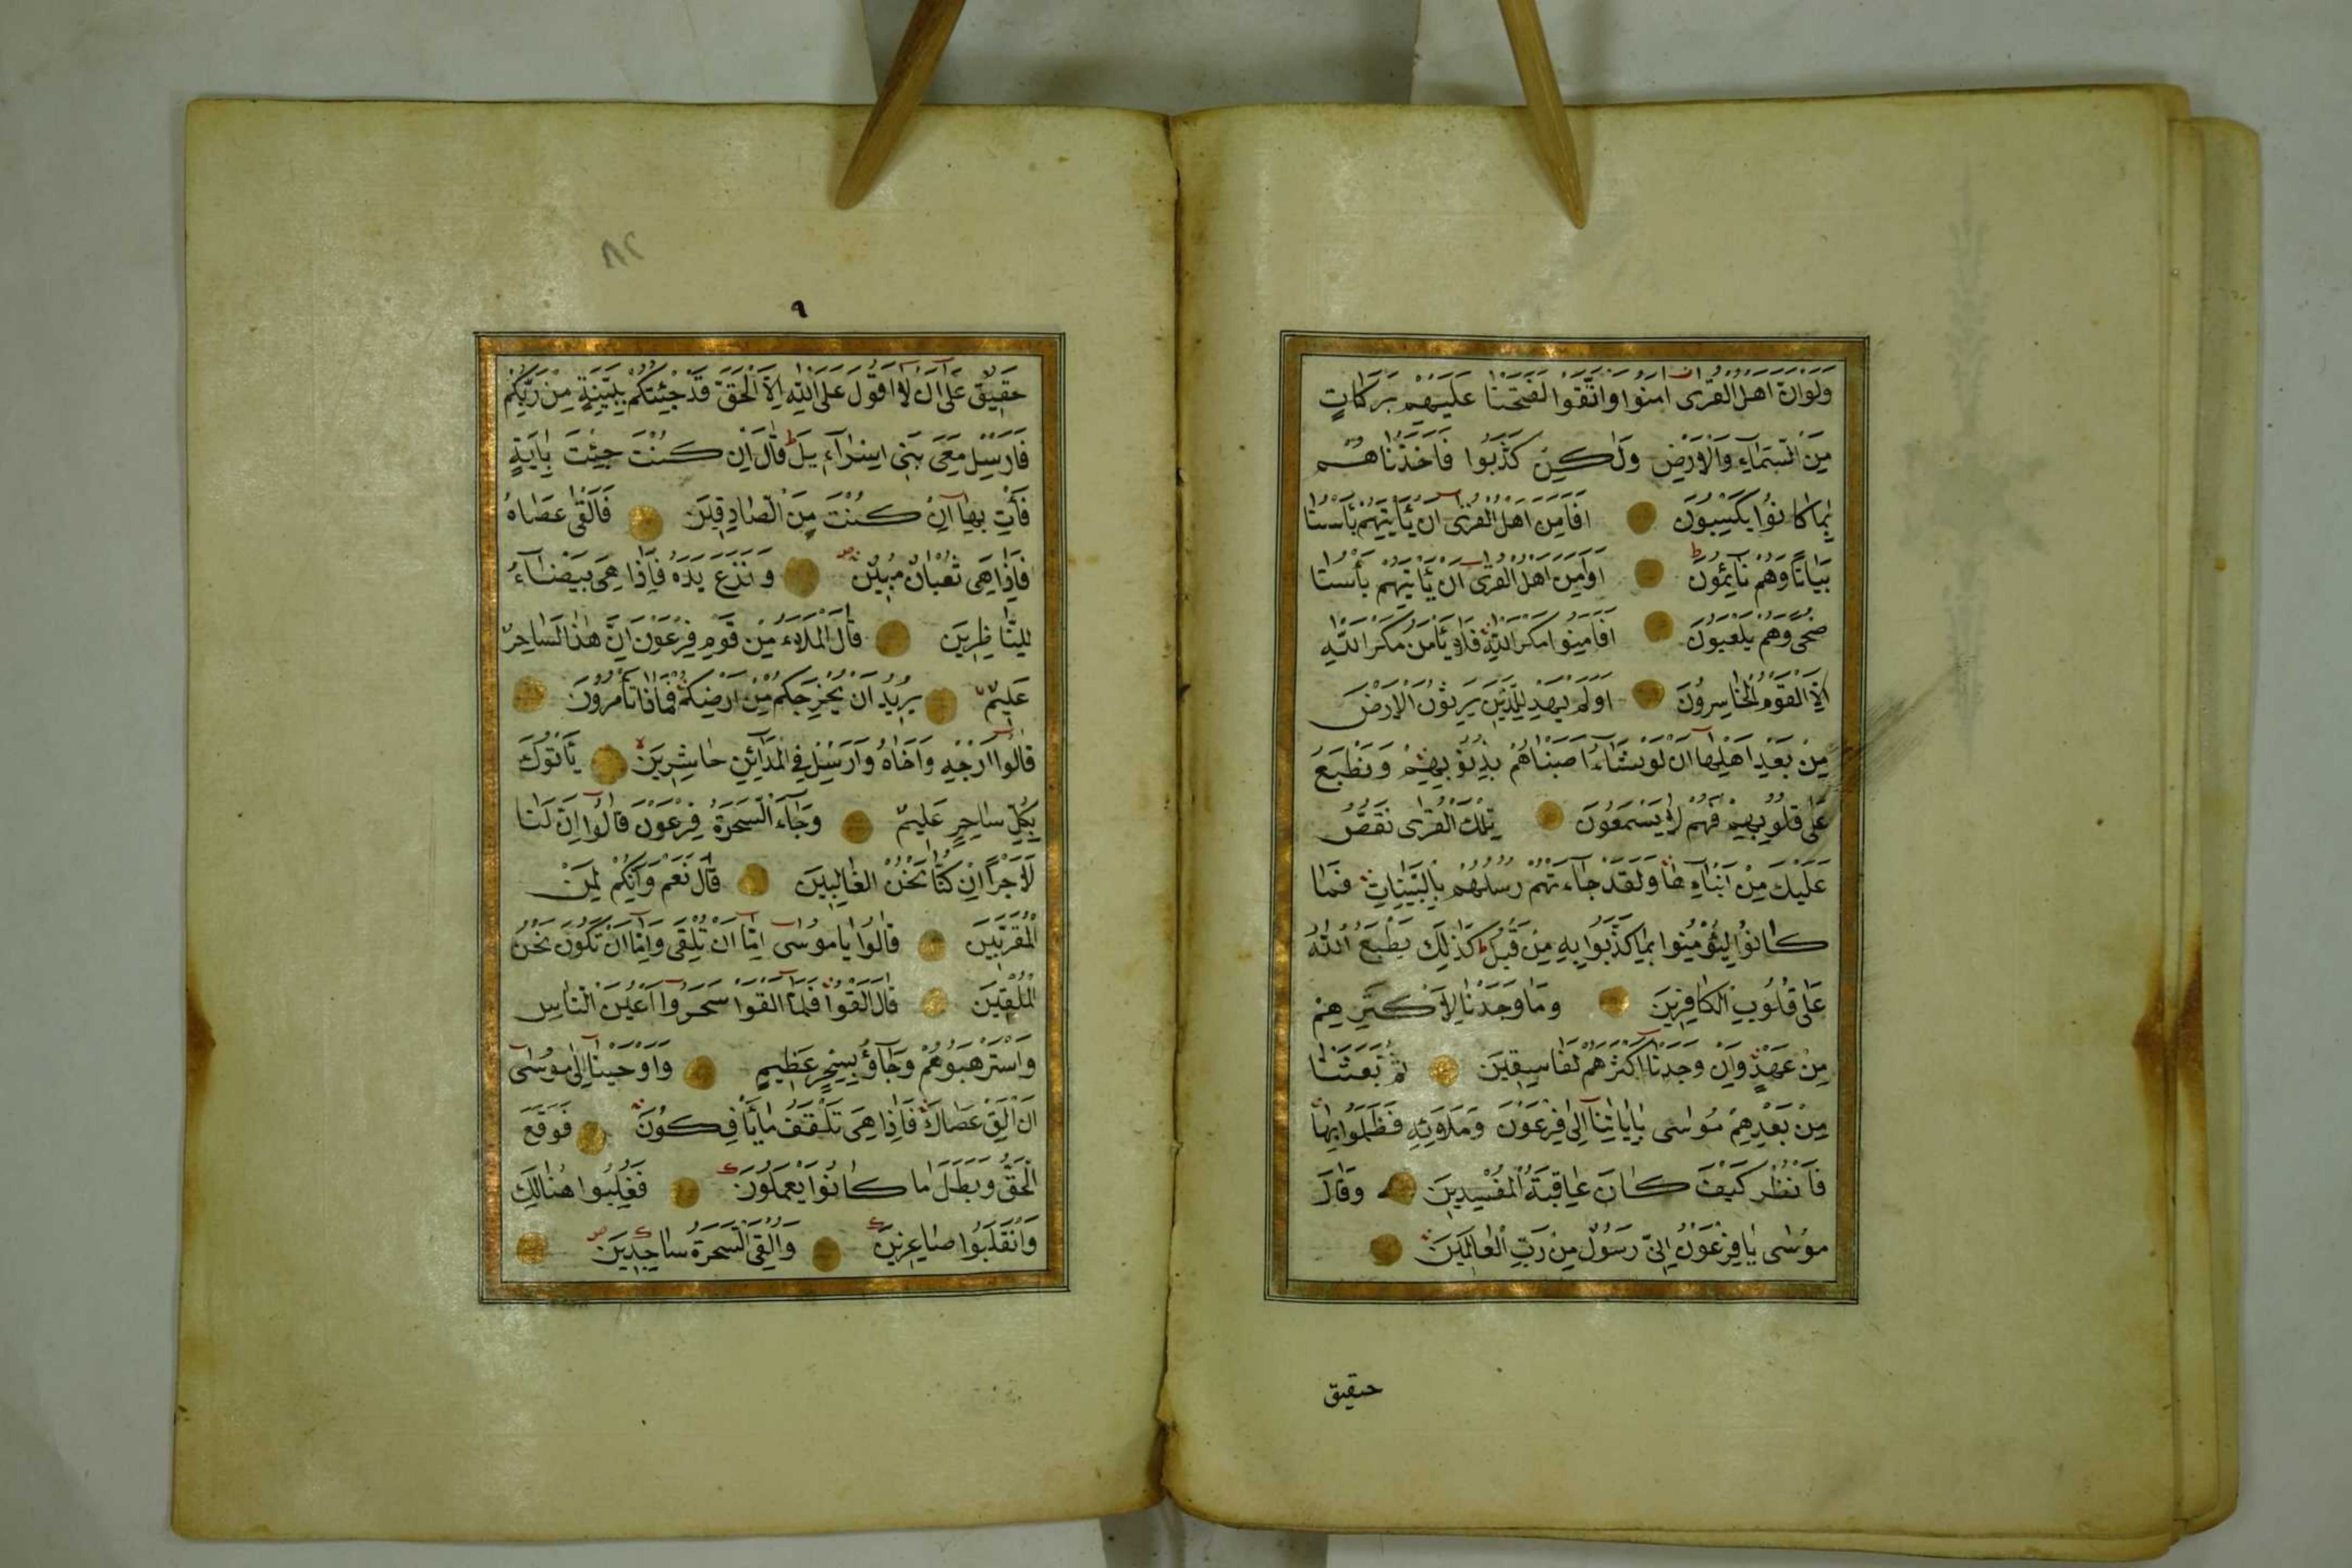 وَلَوْ اَنَّ اَهْلَ الْقُرٰى اٰمَنُوا وَاتَّقَوْا لَفَتَحْنَا عَلَيْهِمْ بَرَكَاتٍ
مِنَ السَّمَآءِ وَالْاَرْضِ وَلٰكِنْ كَذَّبُوا فَاَخَذْنَاهُمْ
بِمَا كَانُوا يَكْسِبُونَ اَفَاَمِنَ اَهْلُ الْقُرٰٓى اَنْ يَاْتِيَهُمْ بَاْسُنَا
بَيَاتًا وَهُمْ نَآئِمُونَ اَوَاَمِنَ اَهْلُ الْقُرٰٓى اَنْ يَاْتِيَهُمْ بَاْسُنَا
ضُحًى وَهُمْ يَلْعَبُونَ اَفَاَمِنُوا مَكْرَ اللّٰهِ فَلَا يَاْمَنُ مَكْرَ اللّٰهِ
اِلَّا الْقَوْمُ الْخَاسِرُونَ اَوَلَمْ يَهْدِ لِلَّذِينَ يَرِثُونَ الْاَرْضَ
مِنْ بَعْدِ اَهْلِهَآ اَنْ لَوْ نَشَآءُ اَصَبْنَاهُمْ بِذُنُوبِهِمْ وَنَطْبَعُ
عَلٰى قُلُوبِهِمْ فَهُمْ لَا يَسْمَعُونَ تِلْكَ الْقُرٰى نَقُصُّ
عَلَيْكَ مِنْ اَنْبَآئِهَا وَلَقَدْ جَآءَتْهُمْ رُسُلُهُمْ بِالْبَيِّنَاتِ فَمَا
كَانُوا لِيُؤْمِنُوا بِمَا كَذَّبُوا بِهِ مِنْ قَبْلُ كَذٰلِكَ يَطْبَعُ اللّٰهُ
عَلٰى قُلُوبِ الْكَافِرِينَ وَمَا وَجَدْنَا لِاَكْثَرِهِمْ
مِنْ عَهْدٍ وَاِنْ وَجَدْنَآ اَكْثَرَهُمْ لَفَاسِقِينَ ثُمَّ بَعَثْنَا
مِنْ بَعْدِهِمْ مُوسٰى بِاٰيَاتِنَآ اِلٰى فِرْعَوْنَ وَمَلَائِهِ فَظَلَمُوا بِهَا
فَانْظُرْ كَيْفَ كَانَ عَاقِبَةُ الْمُفْسِدِينَ وَقَالَ
مُوسٰى يَا فِرْعَوْنُ اِنِّى رَسُولٌ مِنْ رَبِّ الْعَالَمِينَ
حقيق
٨٢
٩
حَقِيقٌ عَلٰٓى اَنْ لَٓا اَقُولَ عَلَى اللّٰهِ اِلَّا الْحَقَّ قَدْ جِئْتُكُمْ بِبَيِّنَةٍ مِنْ رَبِّكُمْ
فَاَرْسِلْ مَعِىَ بَنِى اِسْرَآءِيلَ قَالَ اِنْ كُنْتَ جِئْتَ بِاٰيَةٍ
فَاْتِ بِهَآ اِنْ كُنْتَ مِنَ الصَّادِقِينَ فَاَلْقٰى عَصَاهُ
فَاِذَا هِىَ ثُعْبَانٌ مُبِينٌ وَنَزَعَ يَدَهُ فَاِذَا هِىَ بَيْضَآءُ
لِلنَّاظِرِينَ قَالَ الْمَلَاُ مِنْ قَوْمِ فِرْعَوْنَ اِنَّ هٰذَا لَسَاحِرٌ
عَلِيمٌ يُرِيدُ اَنْ يُخْرِجَكُمْ مِنْ اَرْضِكُمْ فَمَاذَا تَاْمُرُونَ
قَالُوٓا اَرْجِهِ وَاَخَاهُ وَاَرْسِلْ فِى الْمَدَآئِنِ حَاشِرِينَ يَاْتُوكَ
بِكُلِّ سَاحِرٍ عَلِيمٍ وَجَآءَ السَّحَرَةُ فِرْعَوْنَ قَالُوٓا اِنَّ لَنَا
لَاَجْرًا اِنْ كُنَّا نَحْنُ الْغَالِبِينَ قَالَ نَعَمْ وَاِنَّكُمْ لَمِنَ
الْمُقَرَّبِينَ قَالُوا يَا مُوسٰٓى اِمَّآ اَنْ تُلْقِىَ وَاِمَّآ اَنْ نَكُونَ نَحْنُ
الْمُلْقِينَ قَالَ اَلْقُوا فَلَمَّآ اَلْقَوْا سَحَرُوٓا اَعْيُنَ النَّاسِ
وَاسْتَرْهَبُوهُمْ وَجَآؤُ بِسِحْرٍ عَظِيمٍ وَاَوْحَيْنَآ اِلٰى مُوسٰٓى
اَنْ اَلْقِ عَصَاكَ فَاِذَا هِىَ تَلْقَفُ مَا يَاْفِكُونَ فَوَقَعَ
الْحَقُّ وَبَطَلَ مَا كَانُوا يَعْمَلُونَ فَغُلِبُوا هُنَالِكَ
وَانْقَلَبُوا صَاغِرِينَ وَاُلْقِىَ السَّحَرَةُ سَاجِدِينَ